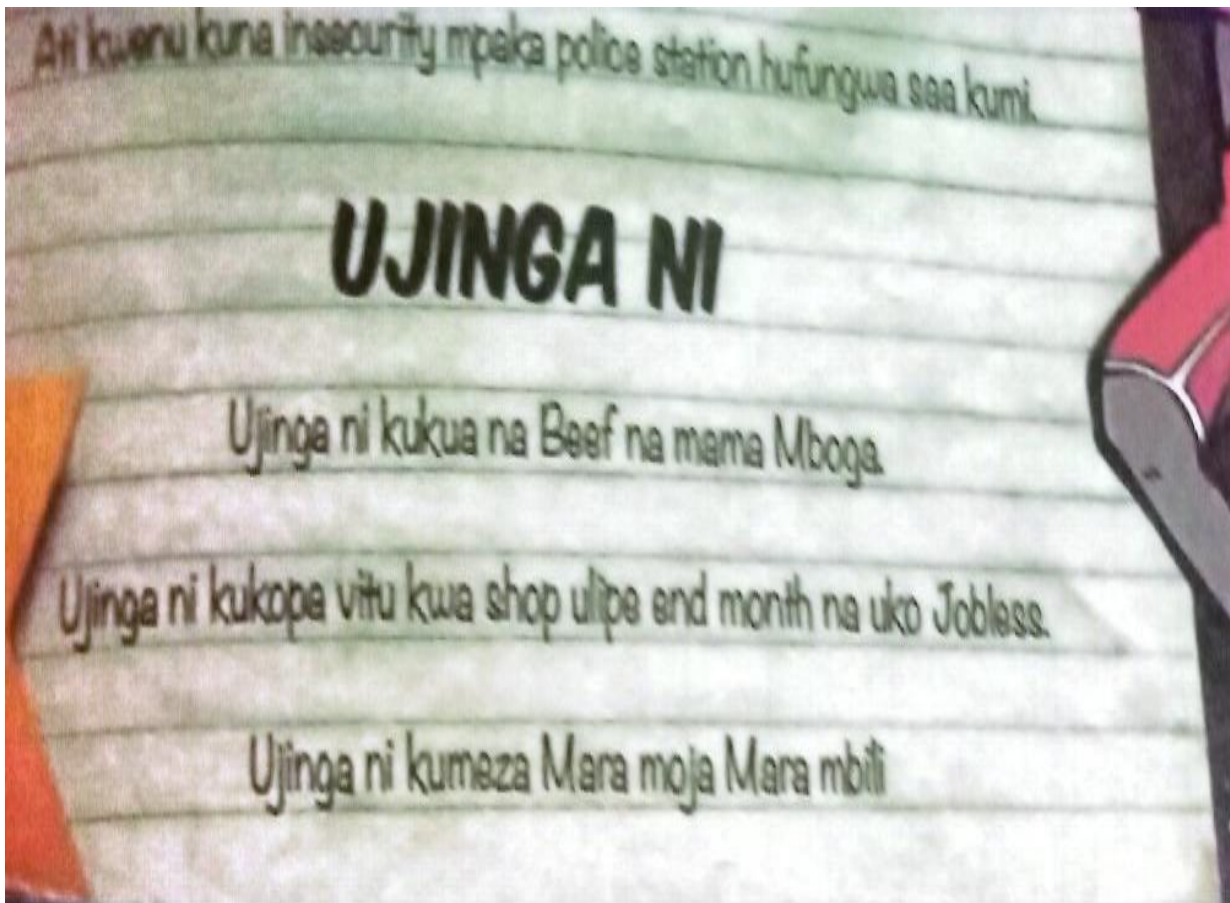 Ati kwenu kuna insecurity mpaka police station hufungwa saa kumi.
UJINGA NI
Ujinga ni kukua na Beef na mama Mboga.
Ujinga ni kukopa vitu kwa shop ulipe end month na uko Jobless.
Ujinga ni kumeza Mara moja Mara mbili